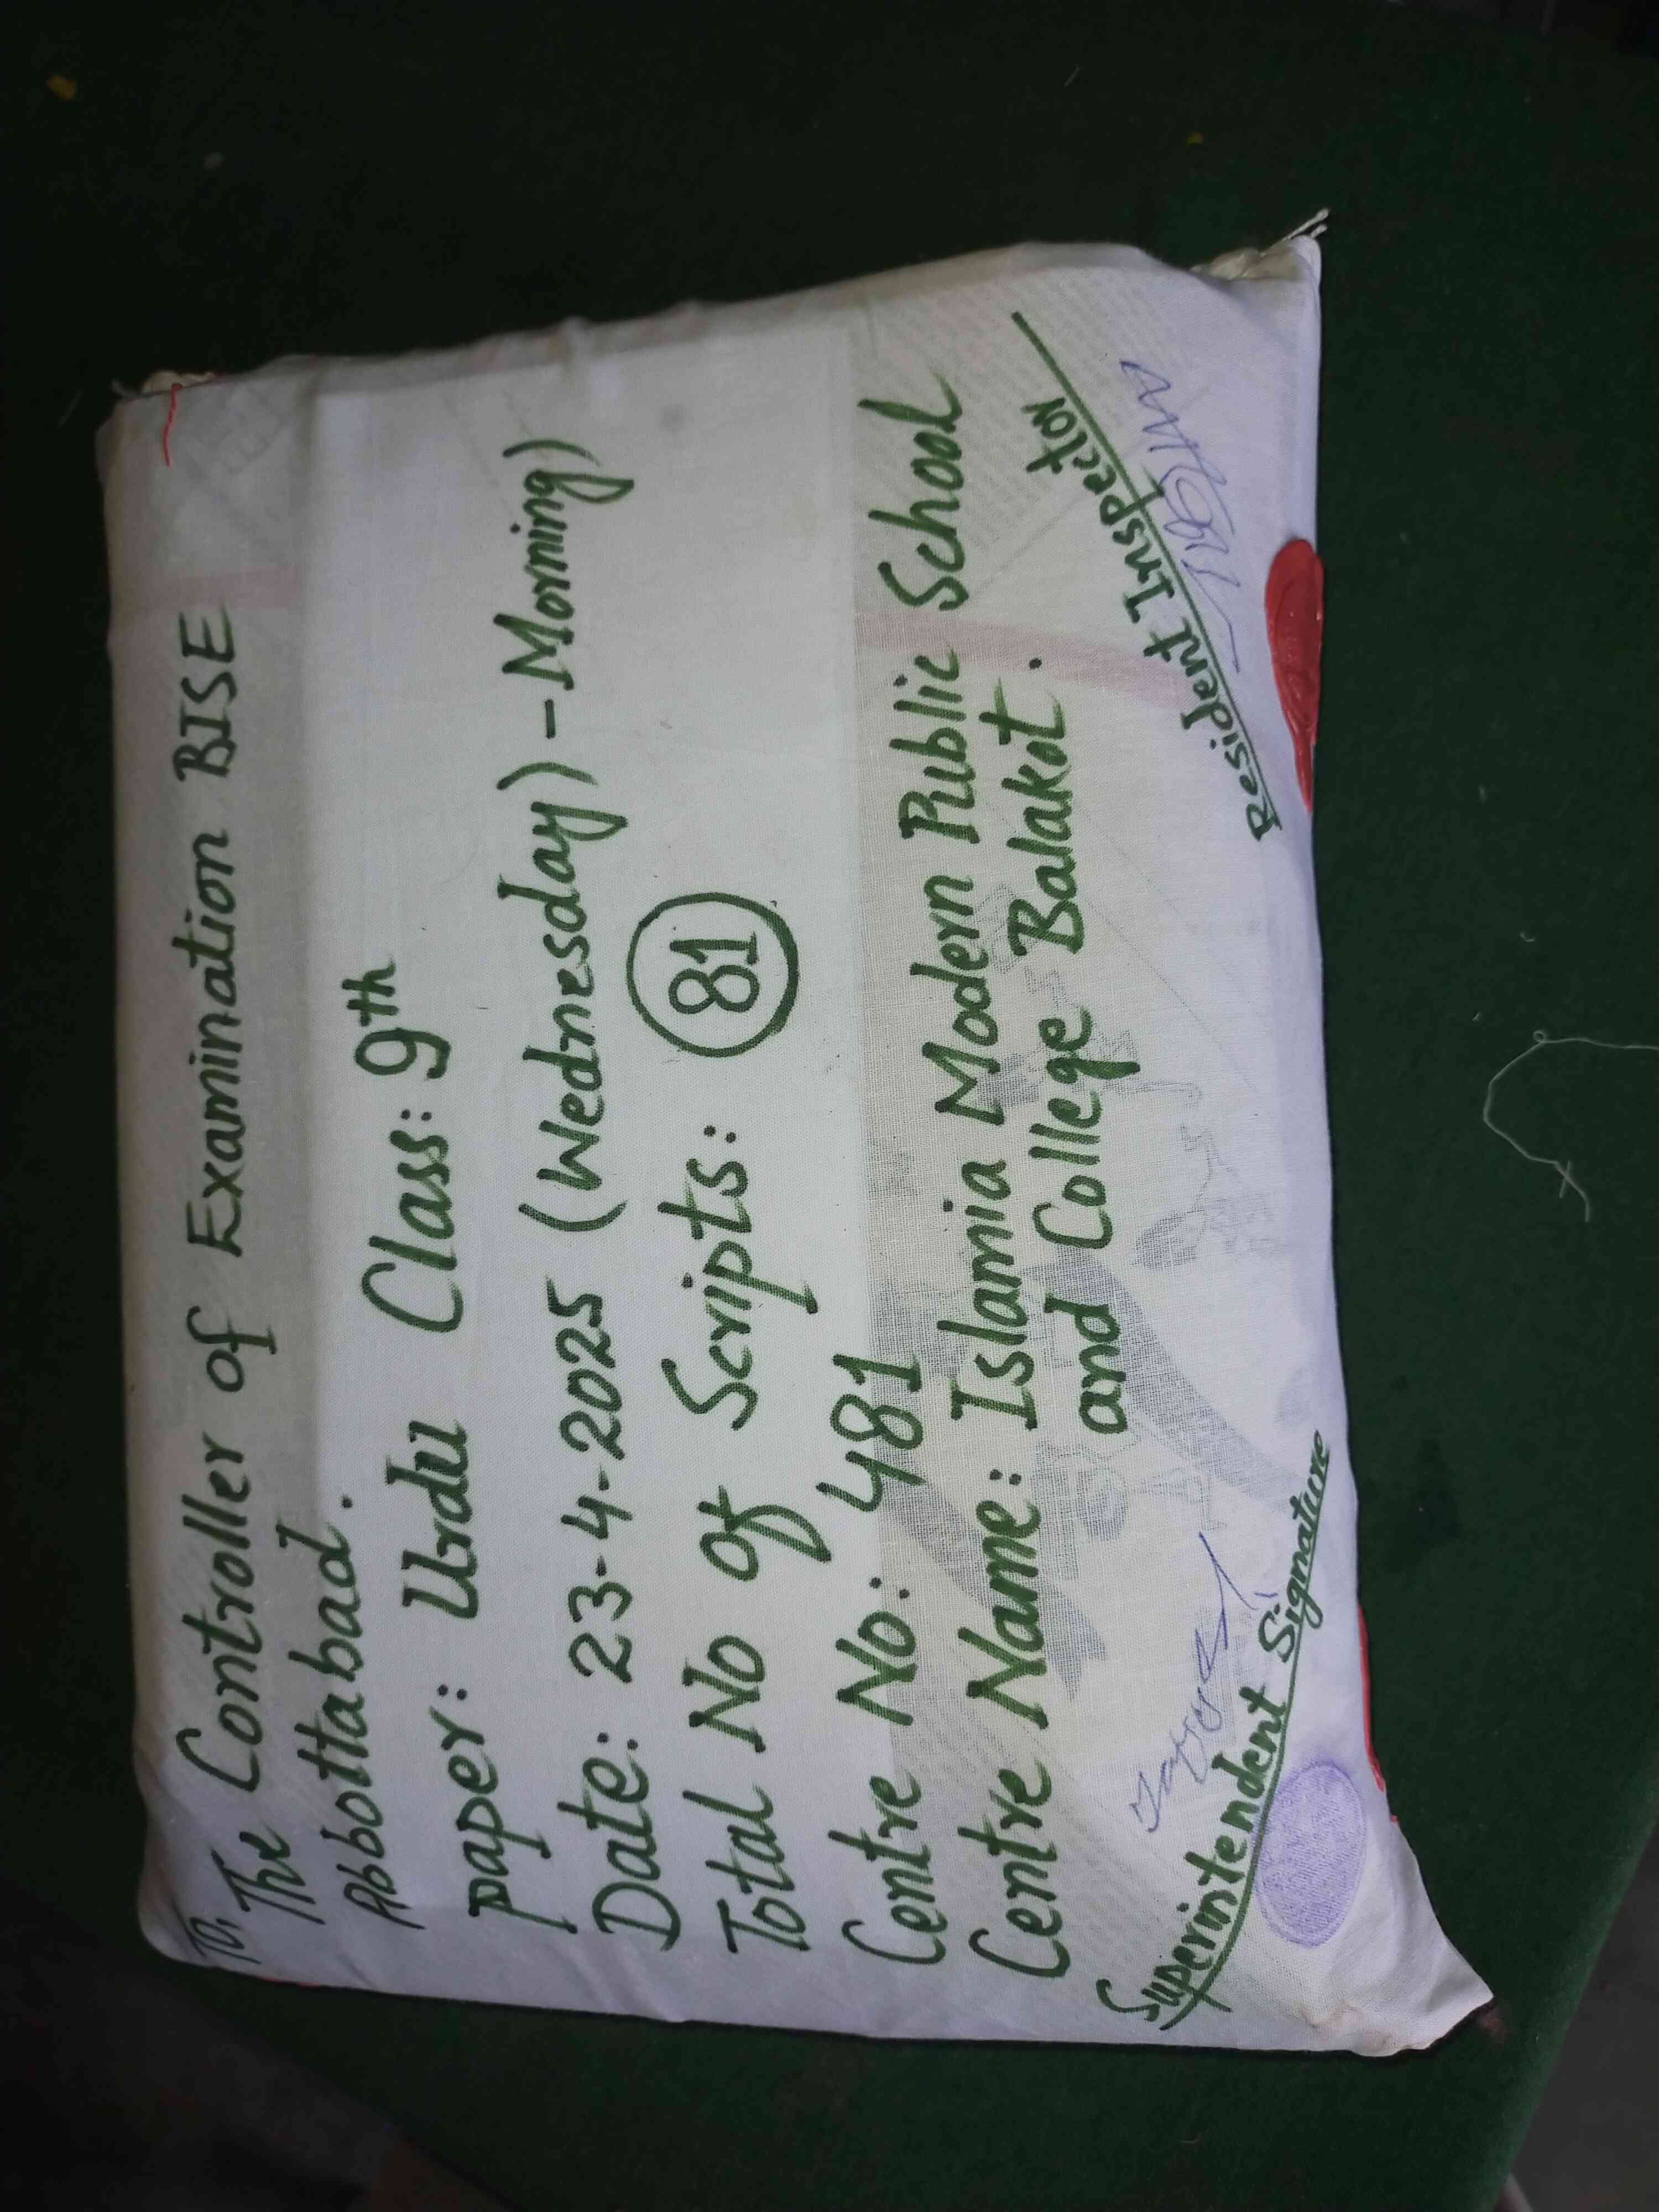 To,
The Controller of Examination BISE
Abbottabad.
paper: Urdu Class: 9th
Date: 23-4-2025 (Wednesday) - Morning)
Total No of Scripts: 81
Centre No: 481
Centre Name: Islamia Modern Public School
and College Balakot.
Superintendent Signature
Resident Inspector